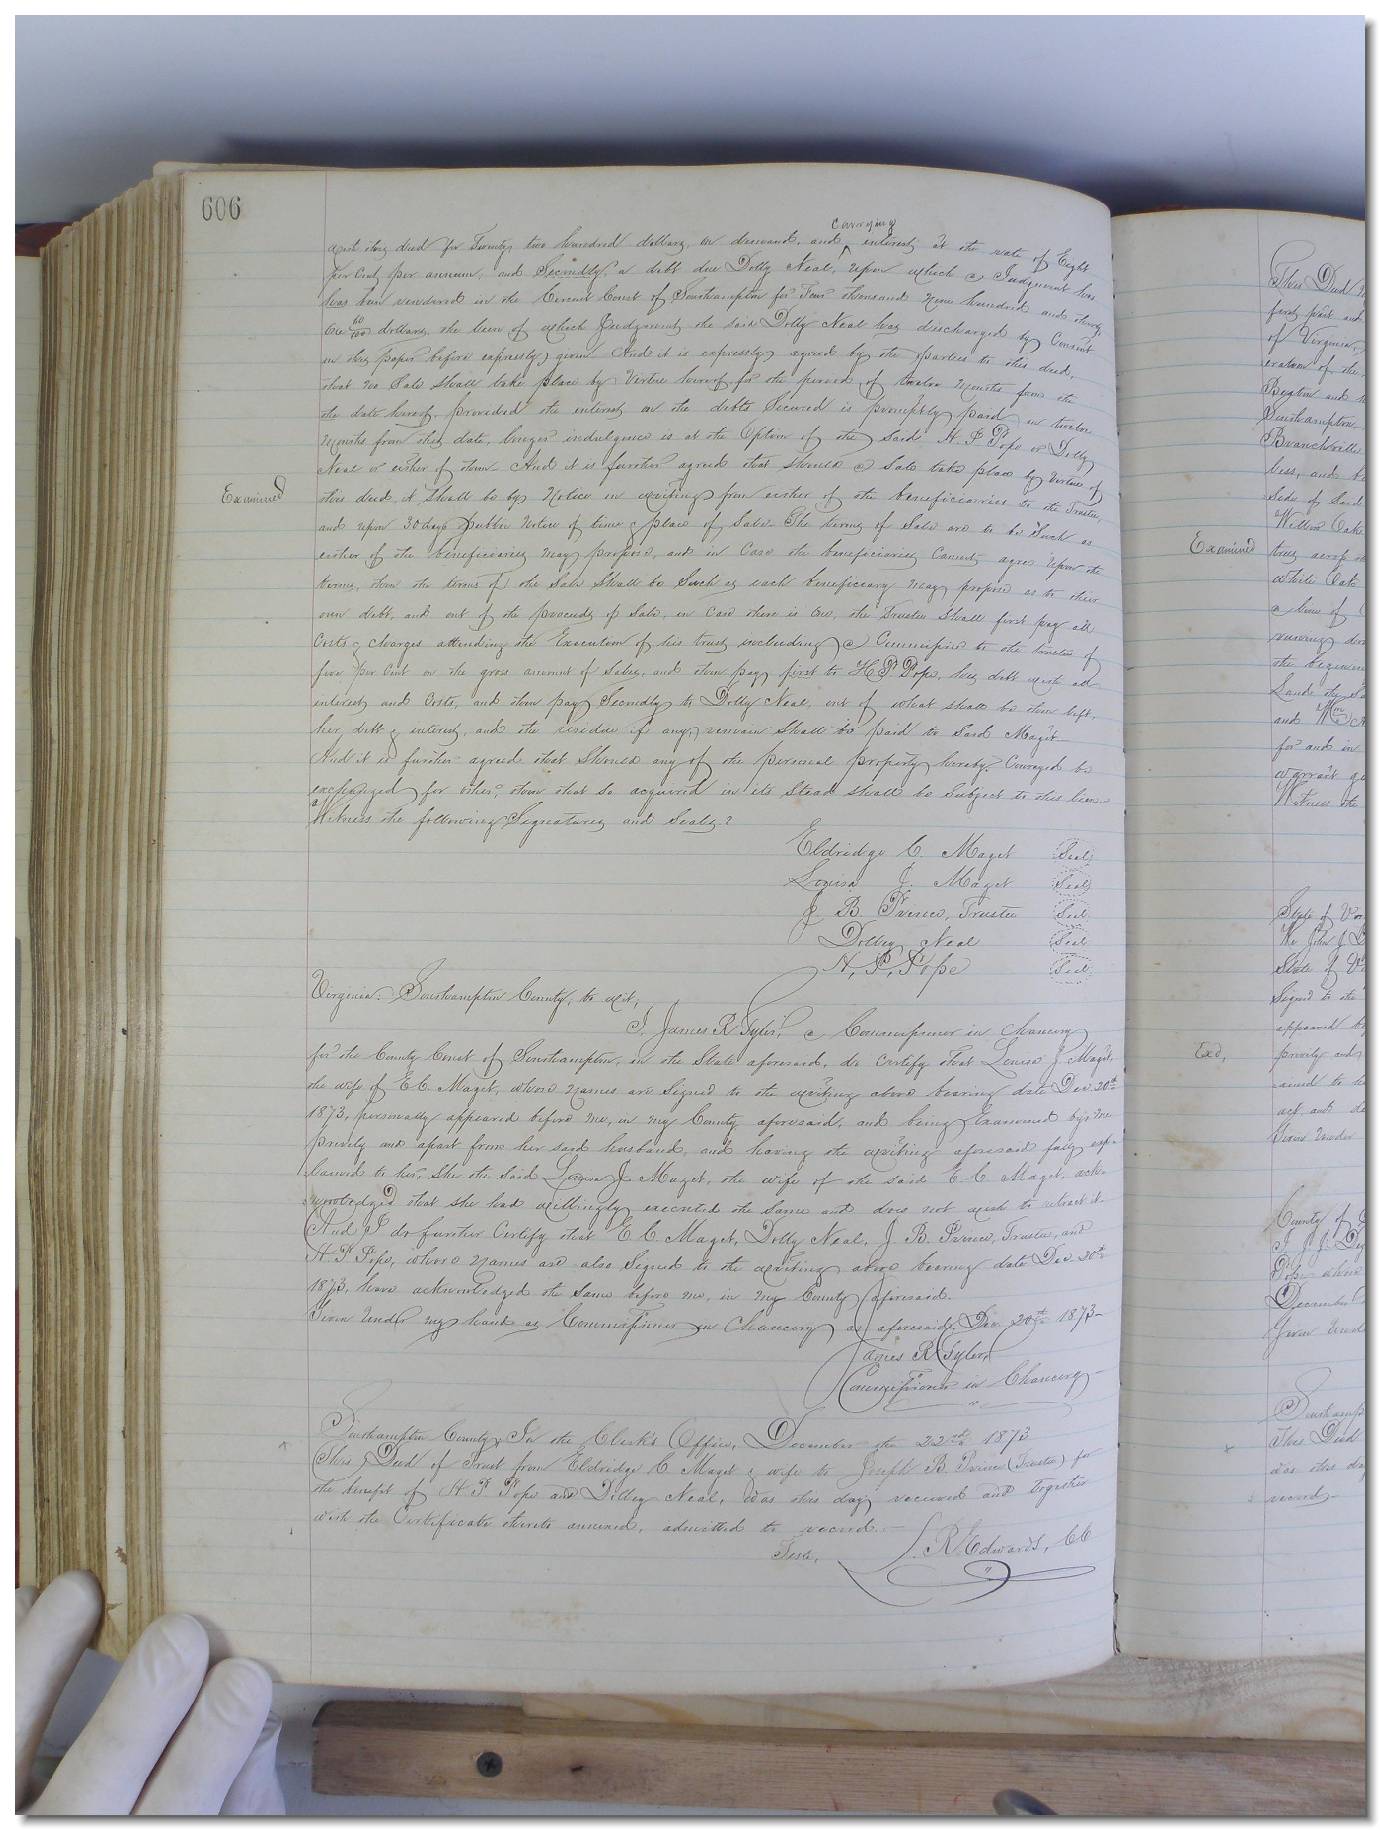 606
carrying
this deed for Twenty two hundred dollars, on demand, and interest at the rate of Eight
per Cent per annum, and Secondly, a debt due Dolly Neal, upon which a Judgment has
has been rendered in the Circuit Court of Southampton for thousand nine hundred and thirty
60/100 dollars, the lien of which Judgment the said Dolly Neal has discharged by Consent
in this paper before expressly given. And it is expressly agreed by the parties to this deed,
that no Sale shall take place by Virtue hereof for the period of twelve Months from the
the date hereof, provided the interest on the debts Secured is promptly paid in twelve
Months from this date, longer indulgence is at the Option of the Said H. P. Pope or Dolly
Neal or either of them. And it is further agreed that should a Sale take place by Virtue of
Examined
this deed, it shall be by Notice in writing from either of the beneficiaries to the Trustee,
and upon 30 days public Notice of time & place of Sale. The terms of Sale are to be Such as
either of the beneficiaries may propose, and in Case the beneficiaries Cannot agree upon the
terms, then the terms of the Sale shall be Such as each beneficiary may propose as to their
own debt, and out of the proceeds of Sale, in Case there is One, the Trustee shall first pay all
Costs & charges attending the Execution of his trust including a Commission to the trustee of
five per Cent on the gross amount of Sales, and then pay first to H. P. Pope, his debt with all
interest and Costs, and then pay Secondly to Dolly Neal, out of what shall be then left,
her debt & interest, and the residue if any remain shall be paid to Said Maget
And it is further agreed that Should any of the personal property hereby Conveyed be
exchanged for other, then that so acquired in its Stead shall be Subject to this lien
Witness the following Signatures and Seals.
Eldridge C. Maget Seal
Louisa J. Maget Seal
J. B. Prince, Trustee Seal
Dolly Neal Seal
H. P. Pope Seal
Virginia. Southampton County, to wit,
I, James R. Tyler, a Commissioner in Chancery
for the County Court of Southampton, in the State aforesaid, do Certify that Louisa J. Maget,
the wife of E. C. Maget, whose names are Signed to the writing above bearing date Dec 20th
1873, personally appeared before me, in my County aforesaid, and being Examined by me
privily and apart from her said husband, and having the writing aforesaid fully exp-
lained to her, She the Said Louisa J. Maget, the wife of the said E. C. Maget, ack-
nowledged that she had willingly executed the Same and does not wish to retract it
And I do further Certify that E C Maget, Dolly Neal, J. B. Prince, Trustee, and
H. P. Pope, whose names are also Signed to the writing above bearing date Dec 20th
1873, have acknowledged the Same before me, in my County aforesaid.
Given Under my hand as Commissioner in Chancery as aforesaid, Dec. 20th 1873
James R. Tyler,
Commissioner in Chancery
Southampton County, In the Clerk's Office, December the 22nd 1873
This Deed of Trust from Eldridge C. Maget & wife to Joseph B. Prince (Trustee) for
the benefit of H. P. Pope and Dolly Neal, Was this day received and together
with the Certificate thereto annexed, admitted to record.
Teste, L. R. Edwards, CC
This Deed
first part and
of Virginia,
eration of the
and
Southampton
Branchville
less, and
Side of Said
Willow Oak
Examined
white Oak
a line of
running
the beginning
Lands
and Wm
for and in
warrant
Witness the
State of
We John J
State of
Signed to the
appeared
Exd,
privily and
act and
Given Under
County of
Pope whose
December
Given Under
Southampton
This Deed
was this day
record